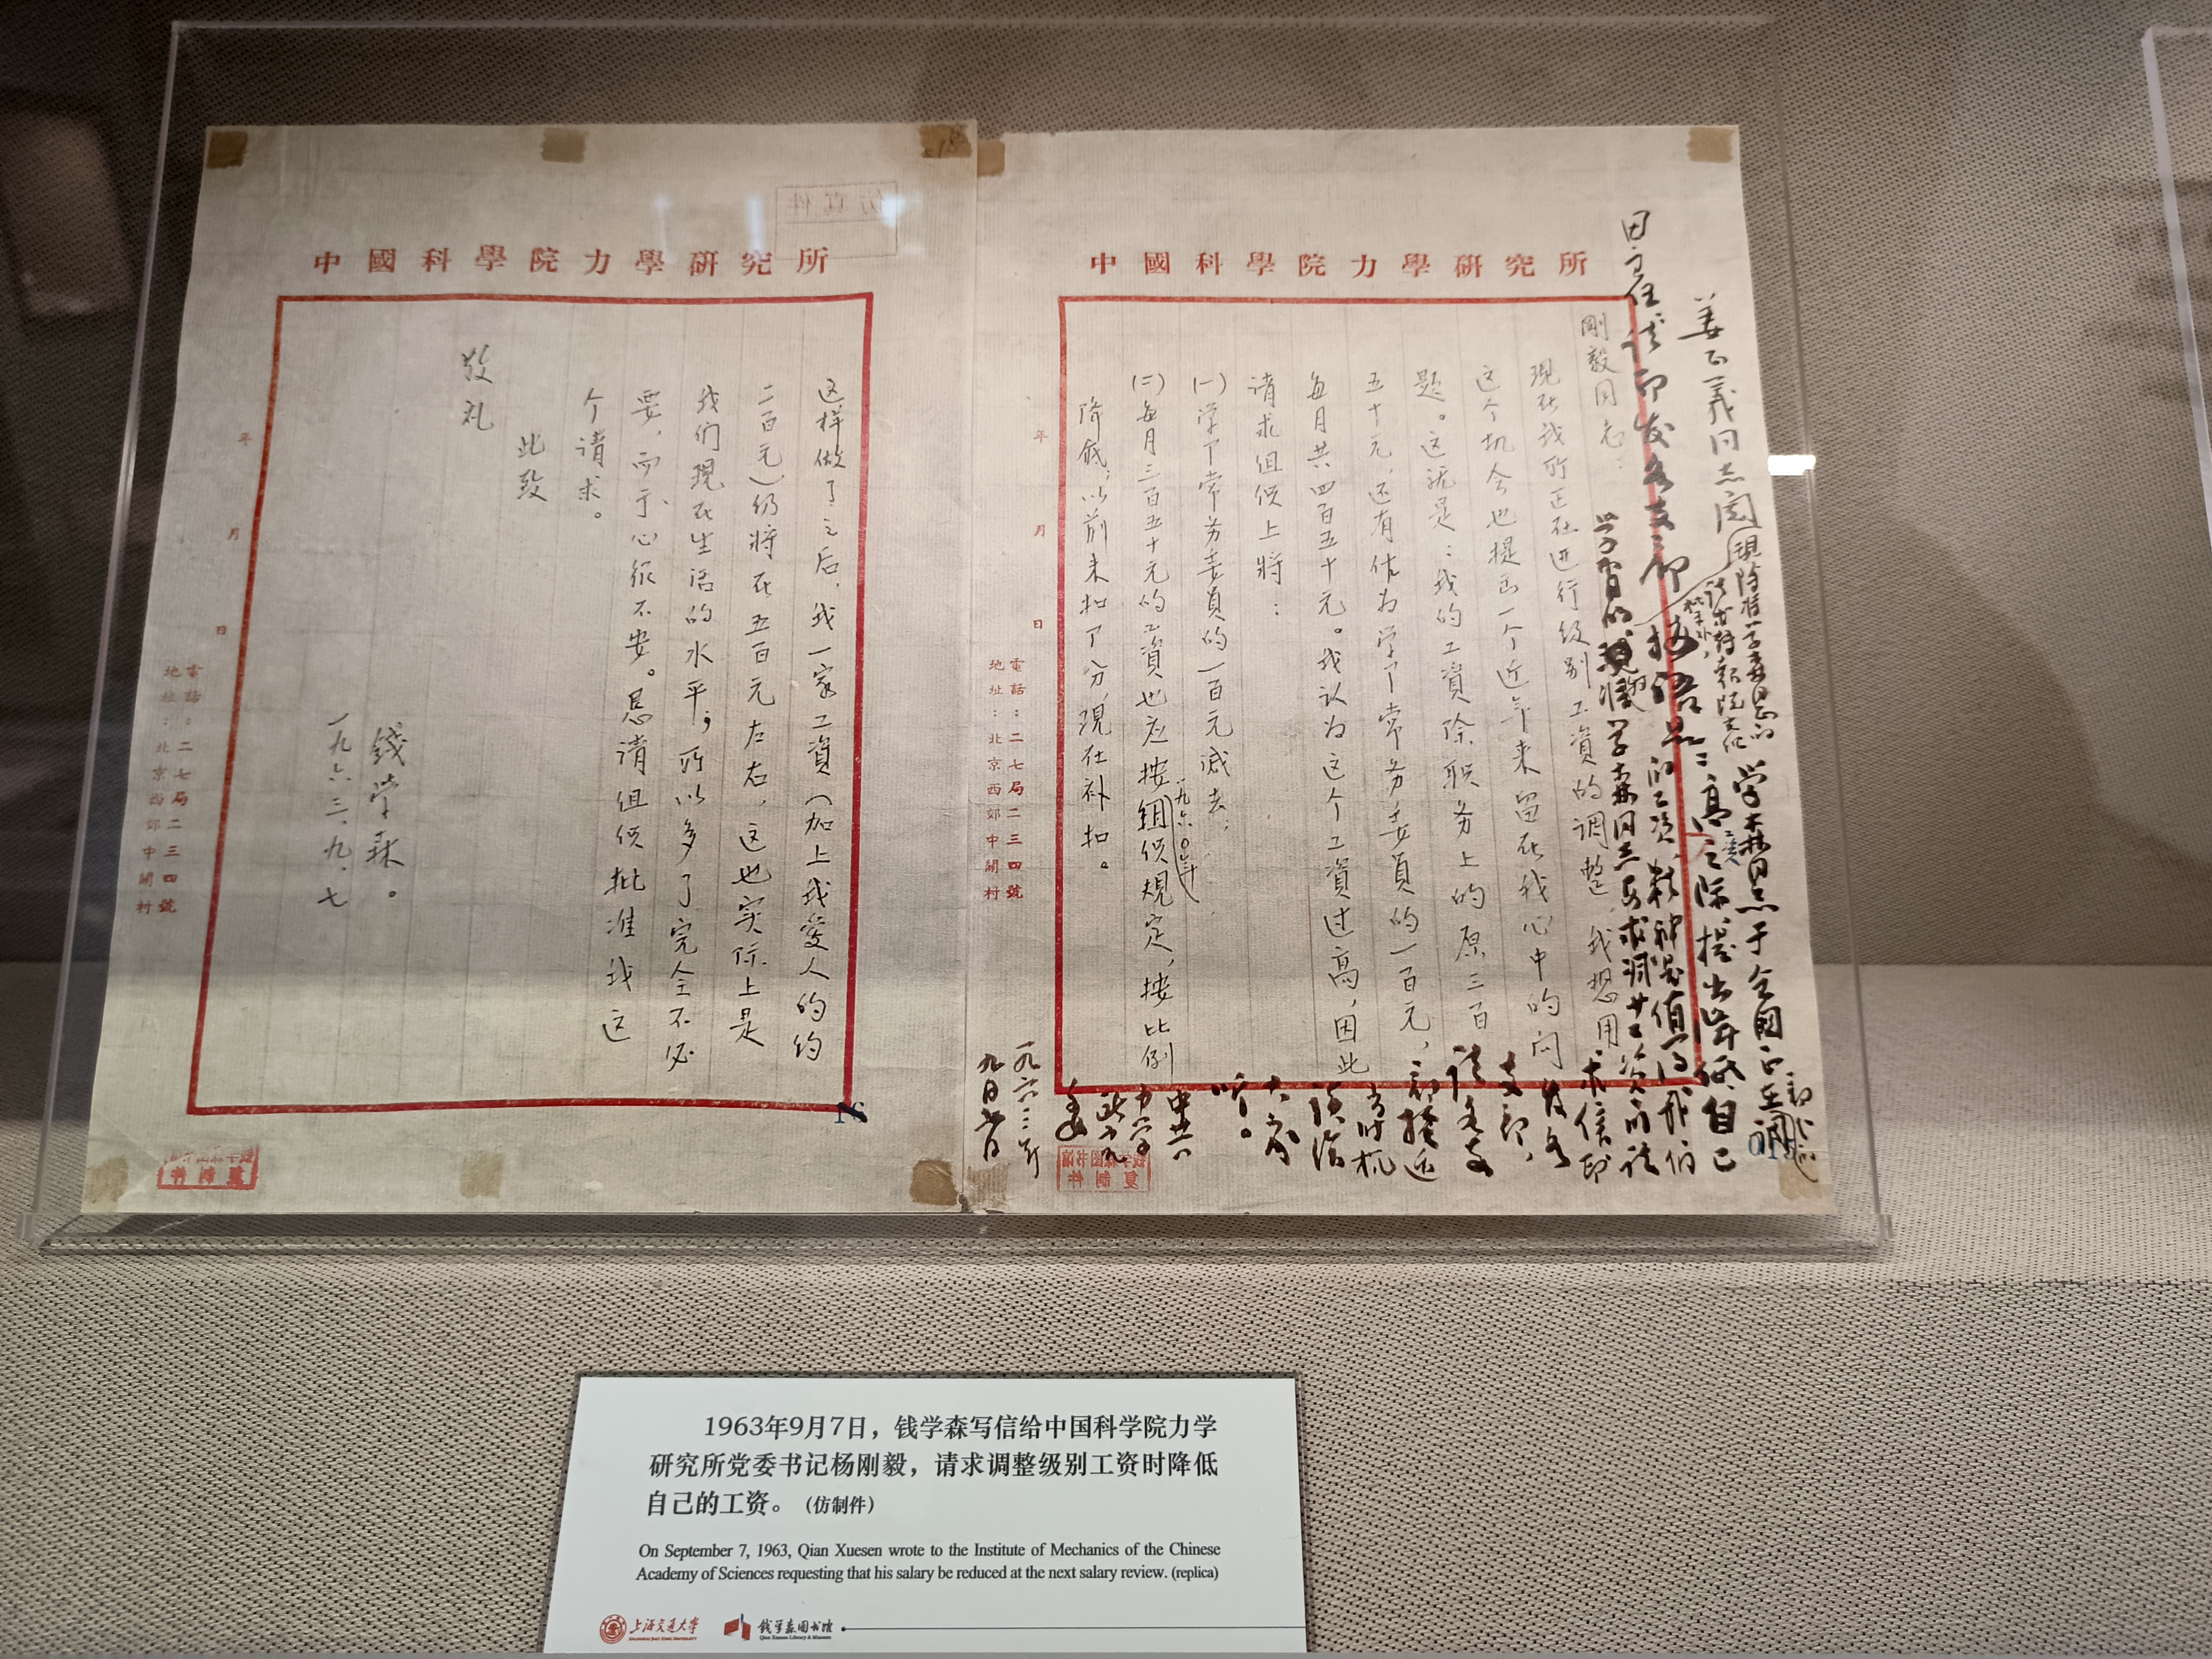 中國科學院力學研究所
剛毅同志：
現在我所正在进行级别工資的调整，我想用
这个机会也提出一个近年来留在我心中的问
题。这就是：我的工資除职务上的原三百
五十元，还有作为学部常务委員的一百元，
每月共四百五十元。我认为这个工資过高，因此
请求组织上將：
(一)学部常务委員的一百元減去；
(二)每月三百五十元的工資也应按一九六〇年组织規定，按比例
降低；以前未扣部分，現在补扣。
電話：二七局二三四號
地址：北京西郊中關村
年 月 日
姜正义同志阅
学森同志于全国正在调
高工资之际，提出降低自己
的工资，精神是值得我们
学习的。现将学森同志要求减工资的
来信印
发各
支部，
请各支
部接
一九六三年
中國科學院力學研究所
这样做了之后，我一家工資（加上我爱人的约
二百元）仍將在五百元左右，这也实际上是
我们現在生活的水平；所以多了完全不必
要，而于心很不安。恳请组织批准我这
个请求。
此致
敬礼
錢学森。
一九六三、九、七
電話：二七局二三四號
地址：北京西郊中關村
年 月 日
1963年9月7日，钱学森写信给中国科学院力学
研究所党委书记杨刚毅，请求调整级别工资时降低
自己的工资。（仿制件）
On September 7, 1963, Qian Xuesen wrote to the Institute of Mechanics of the Chinese
Academy of Sciences requesting that his salary be reduced at the next salary review. (replica)
上海交通大学
SHANGHAI JIAO TONG UNIVERSITY
钱学森图书馆
Qian Xuesen Library & Museum